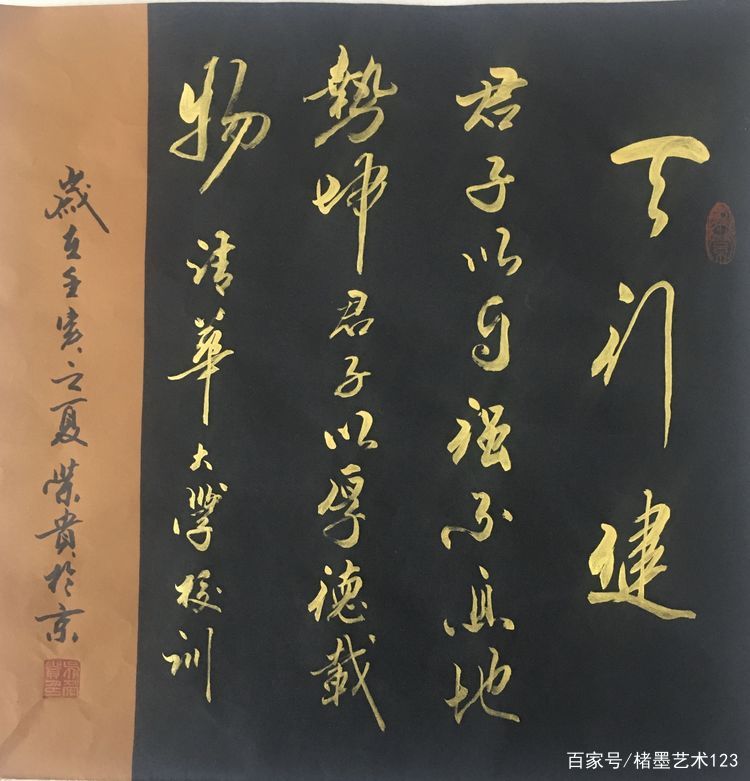 天行健
君子以自强不息地
勢坤君子以厚德載
物 清華大學校訓
歲在壬寅之夏榮貴於京
百家号/楮墨艺术123